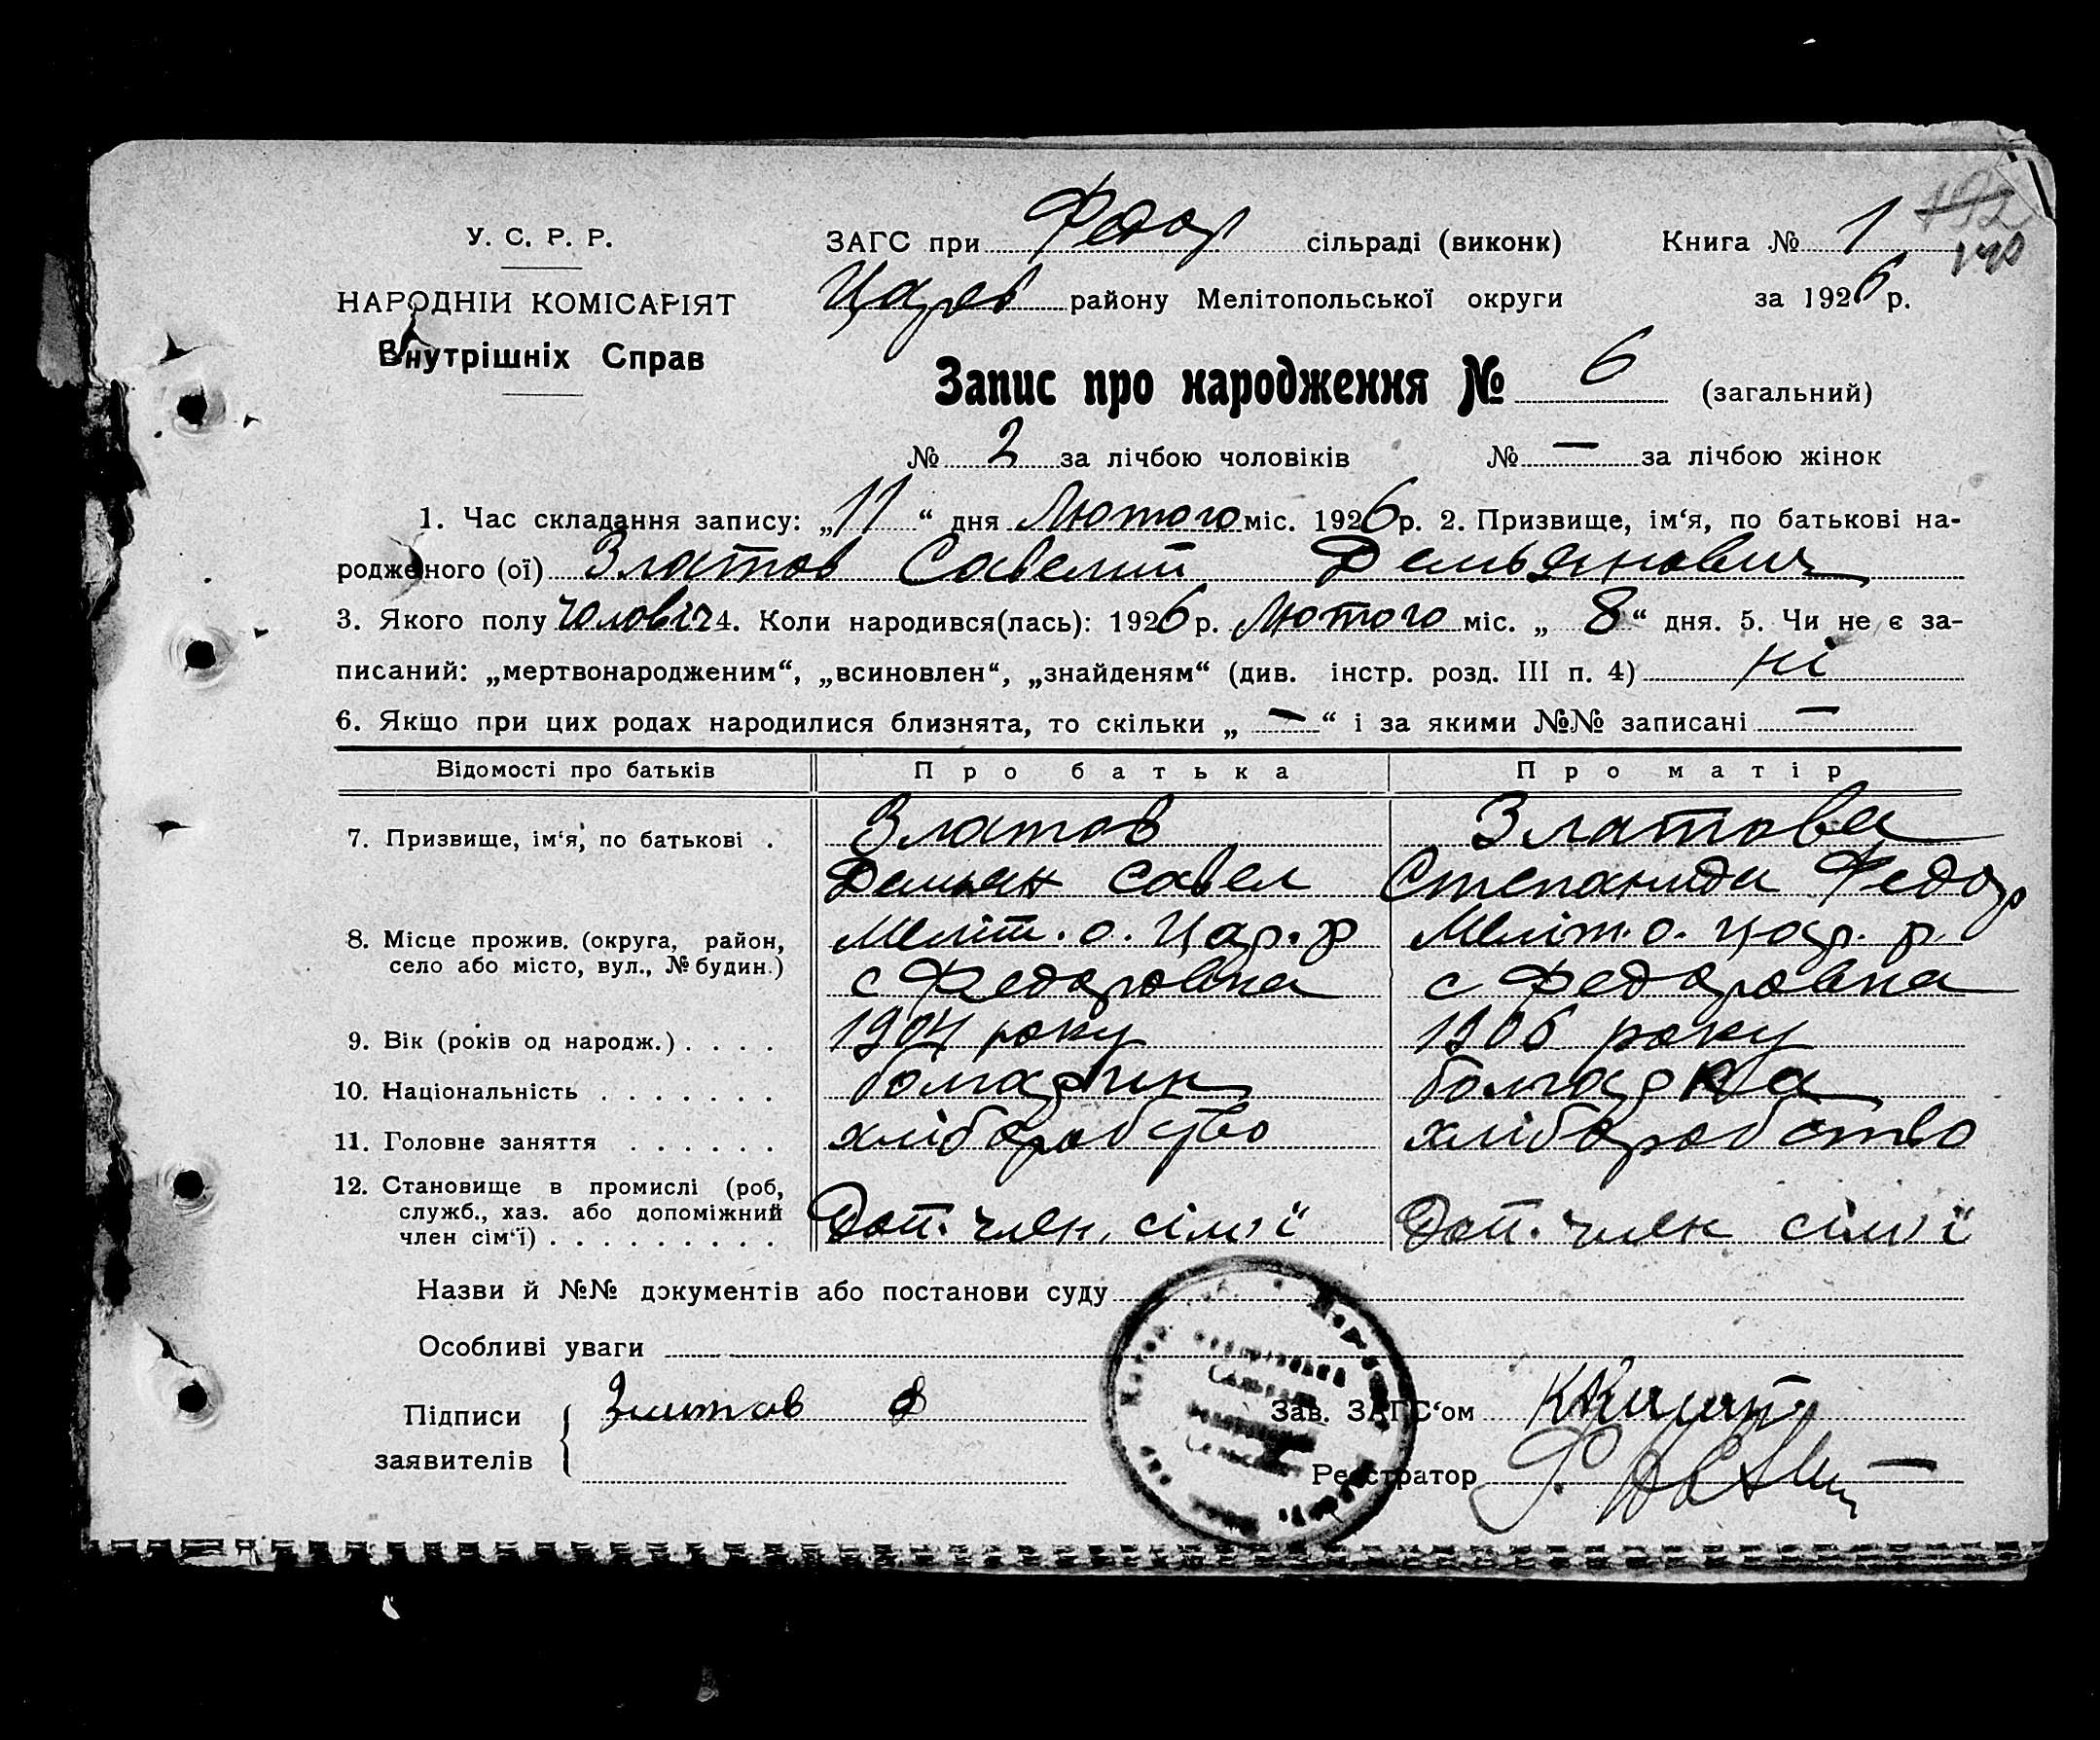 192
140
У. С. Р. Р.
НАРОДНІЙ КОМІСАРІЯТ
Внутрішніх Справ
ЗАГС при Федор сільраді (виконк) Книга № 1
Царев району Мелітопольської округи за 1926 р.
Запис про народження № 6 (загальний)
№ 2 за лічбою чоловіків № — за лічбою жінок
1. Час складання запису: „11“ дня Лютого міс. 1926 р. 2. Призвище, ім‘я, по батькові на-
родженого (ої) Златов Савелий Демьянович
3. Якого полу чоловіч 4. Коли народився(лась): 1926 р. Лютого міс. „8“ дня. 5. Чи не є за-
писаний: „мертвонародженим“, „всиновлен“, „знайденям“ (див. інстр. розд. III п. 4) ні
6. Якщо при цих родах народилися близнята, то скільки „—“ і за якими №№ записані —
Відомості про батьків Про батька Про матір
7. Призвище, ім‘я, по батькові . Златов Златова
Демьян Савел Степанида Федор
8. Місце прожив. (округа, район, Меліт. о. Цар. р Меліт. о. Цар. р.
село або місто, вул., № будин.) с Федоровка с Федоровка
9. Вік (років од народж.) . . . . 1904 року 1906 року
10. Національність . . . . . . . болгарин болгарка
11. Головне заняття . . . . . . хліборобство хліборобство
12. Становище в промислі (роб, служб., хаз. або допоміжний член сім‘ї) . . . . . . . . . Доп. член сім'ї Доп. член сім'ї
Назви й №№ документів або постанови суду
Особливі уваги
Підписи заявителів Златов
Зав. ЗАГС‘ом
Реєстратор